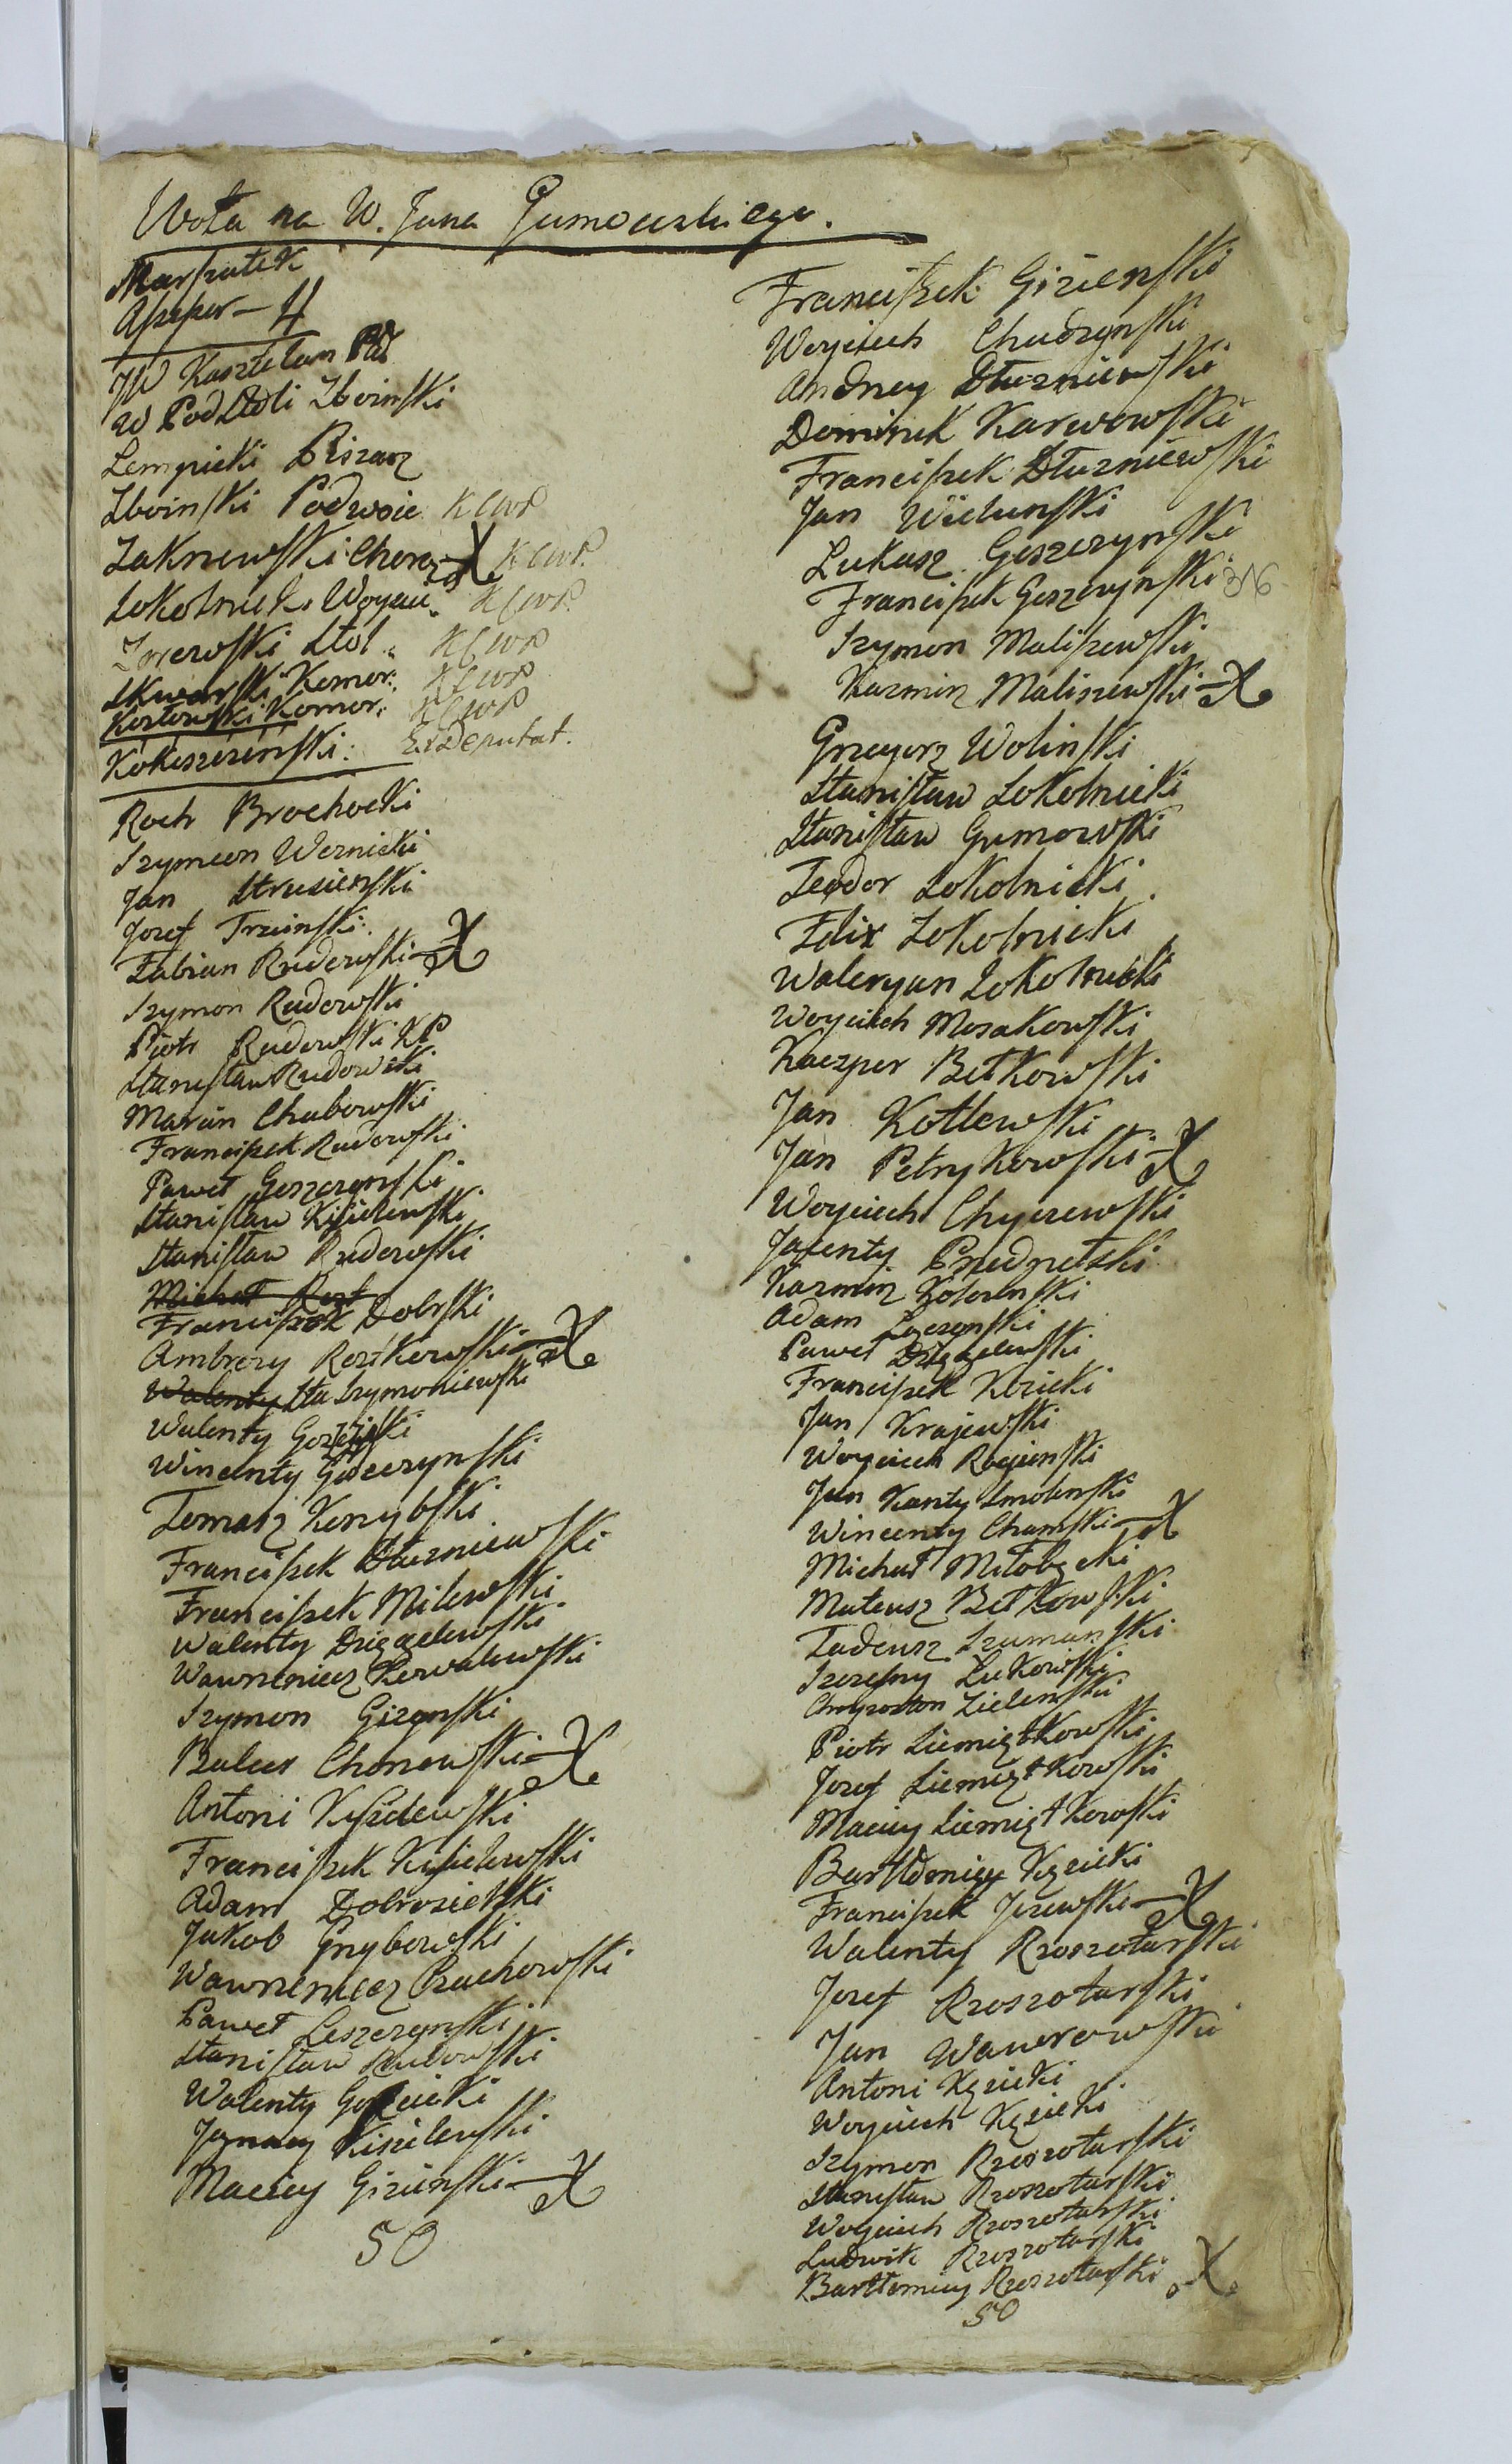 Wota na W. Jana Gumowskiego.
Marszałek
Assesor – 4
JW Kasztelan
W PodStoli Zboinski
Lempicki Pisarz
Zboinski Podwoie KCWP
Zakrzewski Choraż X KCWP.
Sokolnick. Woyew. KCWP.
Jżewski Stol. KCWP
Skwarski Komor. KCWP
Kozłowski Komor. KCWP
Kokoszczinski. ExDeputat.
Roch Brochocki
Szymeon Wernicki
Jan Strusienski
Jozef Trzcinski.
Fabian Rudowski X
Szymon Rudowski
Piotr Rudowski KP
Stanisław Rudowski
Marcin Chubowski
Franciszek Rudowski
Paweł Goszczynski
Stanisław Kisielewski
Stanisław Rudowski
Michał Rost
Franciszek Dobrski
Ambrozy Rostkowski X
Walenty Sta Szymoniewski
Walenty
Wincenty Goszczynski
Tomasz Konybski
Franciszek Dłuzniewski
Franciszek Milewski
Walenty Dzięgelewski
Wawrzeniecz Kowalewski
Szymon Gizynski
Balcer Chonowski X
Antoni Kisielewski
Franciszek Kisielewski
Adam Dobrosielski
Jakob Grzybowski
Wawrzeniecz Czachowski
Paweł Leszczynski
Stanisław Rudowski
Walenty
Jgnacy Kisielewski
Maciey Gizinski X
50
Franciszek Gizienski
Woyciech Chudzynski
Andrzey Dłuzniewski
Dominik Karwowski
Franciszek Dłuzniewski
Jan Wielunski
Łukasz Goszczynski
Franciszek Goszczynski 316
Szymon Maliszewski
Kazmirz Maliszewski X
Grzegorz Wolinski
Stanisław Sokolnicki
Stanisław Gumowski
Teodor Sokolnicki
Felix Sokolnicki
Waleryan Sokolnicki
Woyciech Mosakowski
Kaczper Bełkowski
Jan Kotlewski
Jan Petrykowski X
Woyciech Chyczewski
Jacenty Przedpełski
Kazmirz
Adam Łączynski
Paweł Dzięgelewski
Franciszek Kozicki
Jan Krajewski
Woyciech Rogienski
Jan Kanty Smolenski
Wincenty Chamski X
Michał Miłobęcki
Mateusz Bełkowski
Tadeusz Szumanski
Szczesny Łukowski
Chryzostom Zielenski
Piotr Siemiątkowski
Jozef Siemiątkowski
Maciey Siemiątkowski
Bartłomiey Kęsicki
Franciszek Jezewski X
Walenty Rzoszotarski
Jozef Rzoszotarski
Jan Wawrowski
Antoni Kęsicki
Woyciech Kęsicki
Szymon Rzeszotarski
Stanisław Rzoszotarski
Woyciech Rzoszotarski
Ludwik Rzoszotarski
Bartłomiey Rzeszotarski X
50